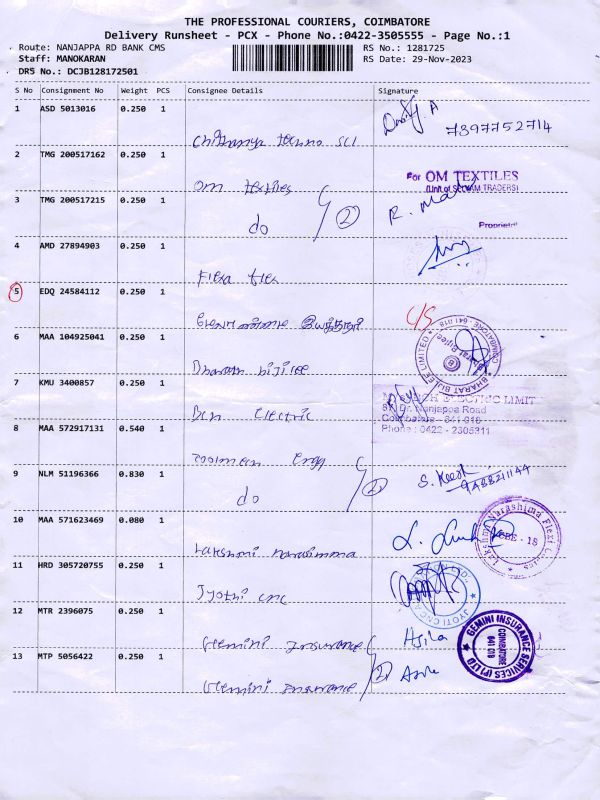 THE PROFESSIONAL COURIERS, COIMBATORE
Delivery Runsheet - PCX - Phone No.:0422-3505555 - Page No.:1
Route: NANJAPPA RD BANK CMS
RS No.: 1281725
Staff: MANOKARAN
RS Date: 29-Nov-2023
DRS No.: DCJB128172501
S No Consignment No Weight PCS Consignee Details Signature
1 ASD 5013016 0.250 1
7897752714
2 TMG 200517162 0.250 1
For OM TEXTILES
(Unit of SELVAM TRADERS)
Om textiles
3 TMG 200517215 0.250 1
do 2
Proprietor
4 AMD 27894903 0.250 1
Flexa flex
5 EDQ 24584112 0.250 1
C/S
6 MAA 104925041 0.250 1
BHARAT BIJLEE LIMITED
COIMBATORE - 641 018
Bharath bijlee
7 KMU 3400857 0.250 1
ELECTRIC LIMIT
Dr. Nanjappa Road
Coimbatore - 641 018
Phone : 0422 - 2305311
Bch Electric
8 MAA 572917131 0.540 1
engg
9 NLM 51196366 0.830 1
S.
do 2
10 MAA 571623469 0.080 1
Lakshmi Narashima Flexi
CBE - 18
Lakshmi Narasimma
11 HRD 305720755 0.250 1
JYOTI CNC
Jyothi cnc
12 MTR 2396075 0.250 1
Gemini Insurance
GEMINI INSURANCE SERVICES (P) LTD
COIMBATORE
641 018
13 MTP 5056422 0.250 1
2
Gemini Insurance